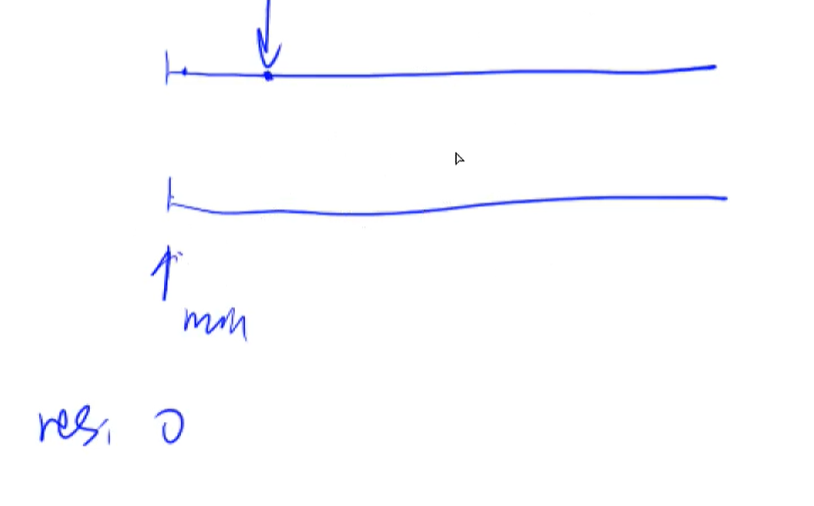 min
res: 0